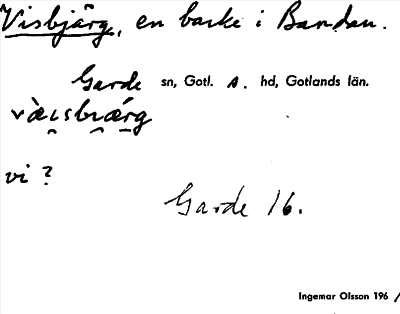 Visbjärg, en backe i Bandan.
Garde sn, Gotl. s. hd, Gotlands län.
vàisbiærg
vi ?
Garde 16.
Ingemar Olsson 196